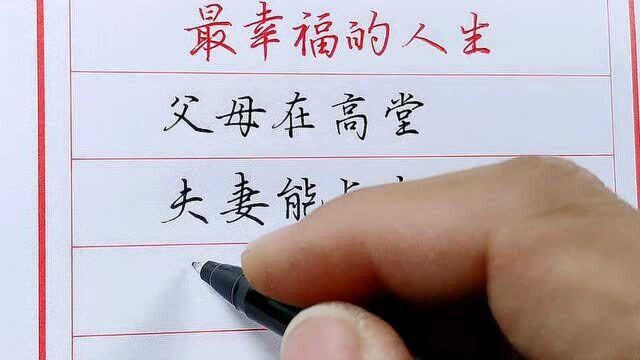 最幸福的人生
父母在高堂
夫妻能